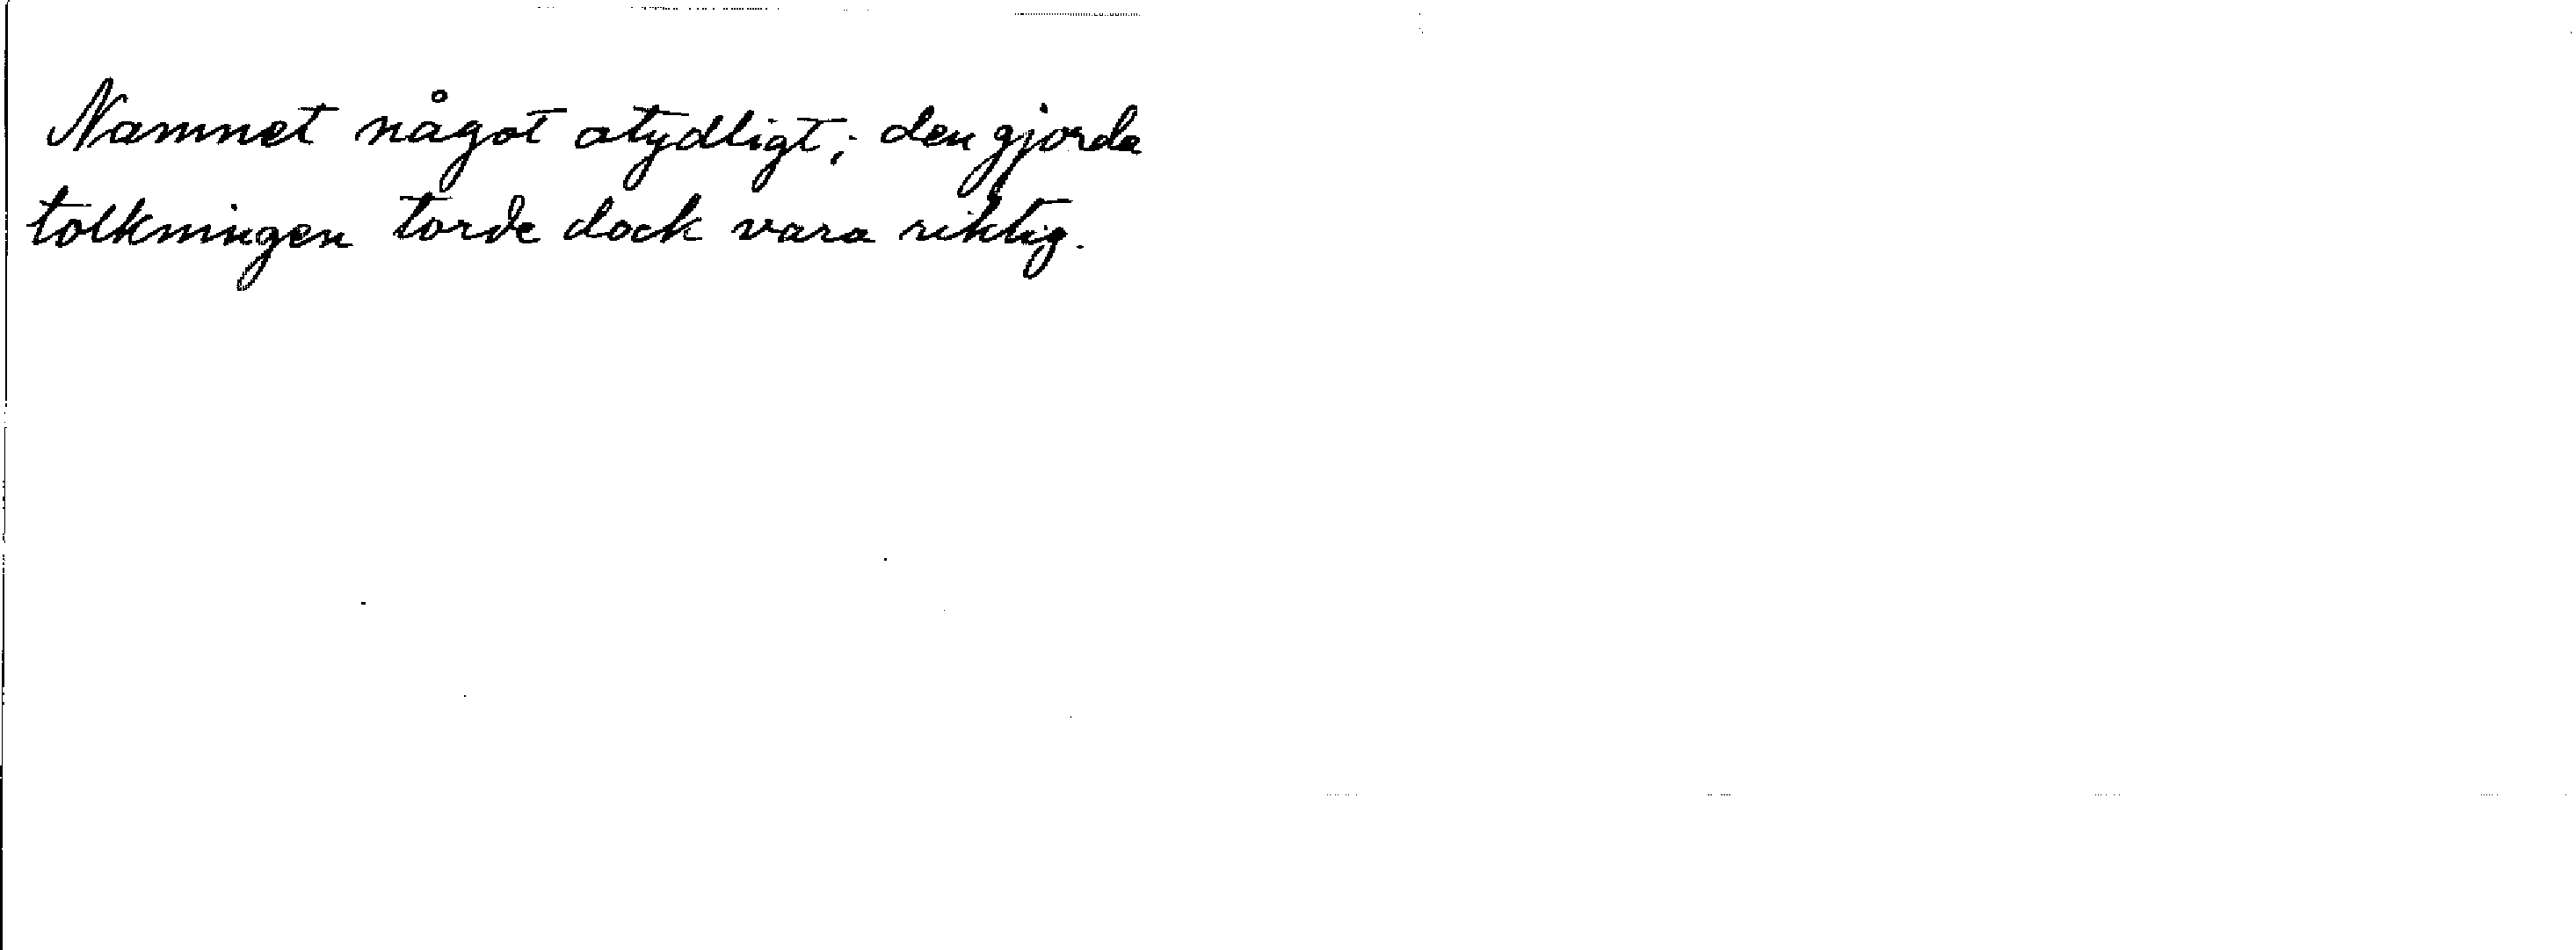 Namnet något otydligt; den gjorda
tolkningen torde dock vara riktig.